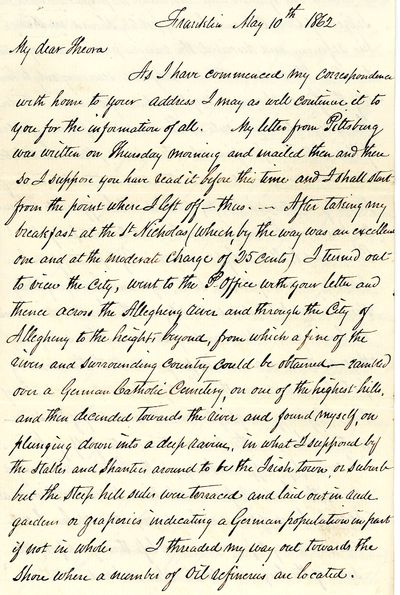 Franklin May 10th 1862
My dear Theora
As I have commenced my correspondence
with home to your address I may as well continue it to
you for the information of all. My letter from Pittsburg
was written on Thursday morning and mailed then and there
so I suppose you have read it before this time and I shall start
from the point where I left off — thus. — After taking my
breakfast at the St Nicholas (which, by the way was an excellent
one and at the moderate charge of 25 cents) I turned out
to view the City, went to the P. Office with your letter and
thence across the Allegheny river and through the City of
Allegheny to the heights beyond, from which a fine of the
rivers and surrounding country could be obtained — rambled
over a German Catholic Cemetery, on one of the highest hills,
and then decended towards the river and found myself, on
plunging down into a deep ravine, in what I supposed by
the Stables and Shanties around to be the Irish town or suburb
but the steep hill sides were terraced and laid out in rude
gardens or graperies indicating a German population in part
if not in whole. I threaded my way out towards the
Shore where a number of Oil refineries are located.